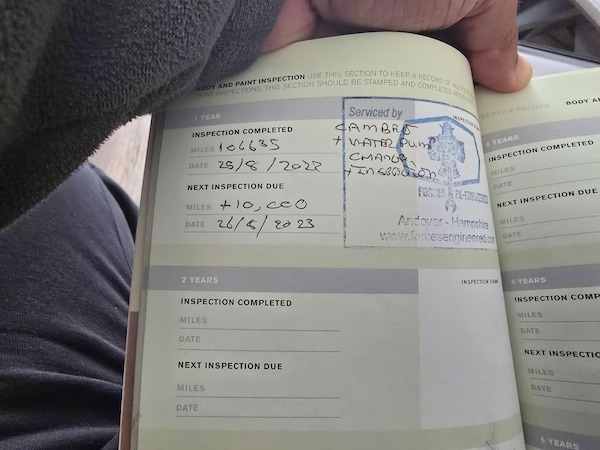 BODY AND PAINT INSPECTION USE THIS SECTION TO KEEP A RECORD OF ALL
PAINT INSPECTIONS. THIS SECTION SHOULD BE STAMPED AND COMPLETED AFTER
1 YEAR
INSPECTION COMPLETED
MILES 106635
DATE 25/8/2022
NEXT INSPECTION DUE
MILES +10,000
DATE 26/8/2023
Serviced by
CAMBELT
+ WATER PUMP
CHANGE
+ INSPECTION
FORBES RE-ENGINEERED
Andover - Hampshire
www.forbesengineered.com
2 YEARS
INSPECTION STAMP
INSPECTION COMPLETED
MILES
DATE
NEXT INSPECTION DUE
MILES
DATE
SERVICE RECORD BODY A
4 YEARS
INSPECTION COMPLETED
MILES
DATE
NEXT INSPECTION DUE
MILES
DATE
5 YEARS
INSPECTION COMP
MILES
DATE
NEXT INSPECTIO
MILES
DATE
6 YEARS